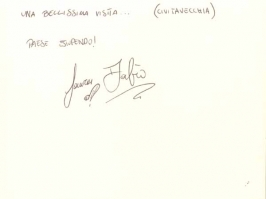 UNA BELLISSIMA VISITA... (CIVITAVECCHIA)
PAESE STUPENDO!
Fabio